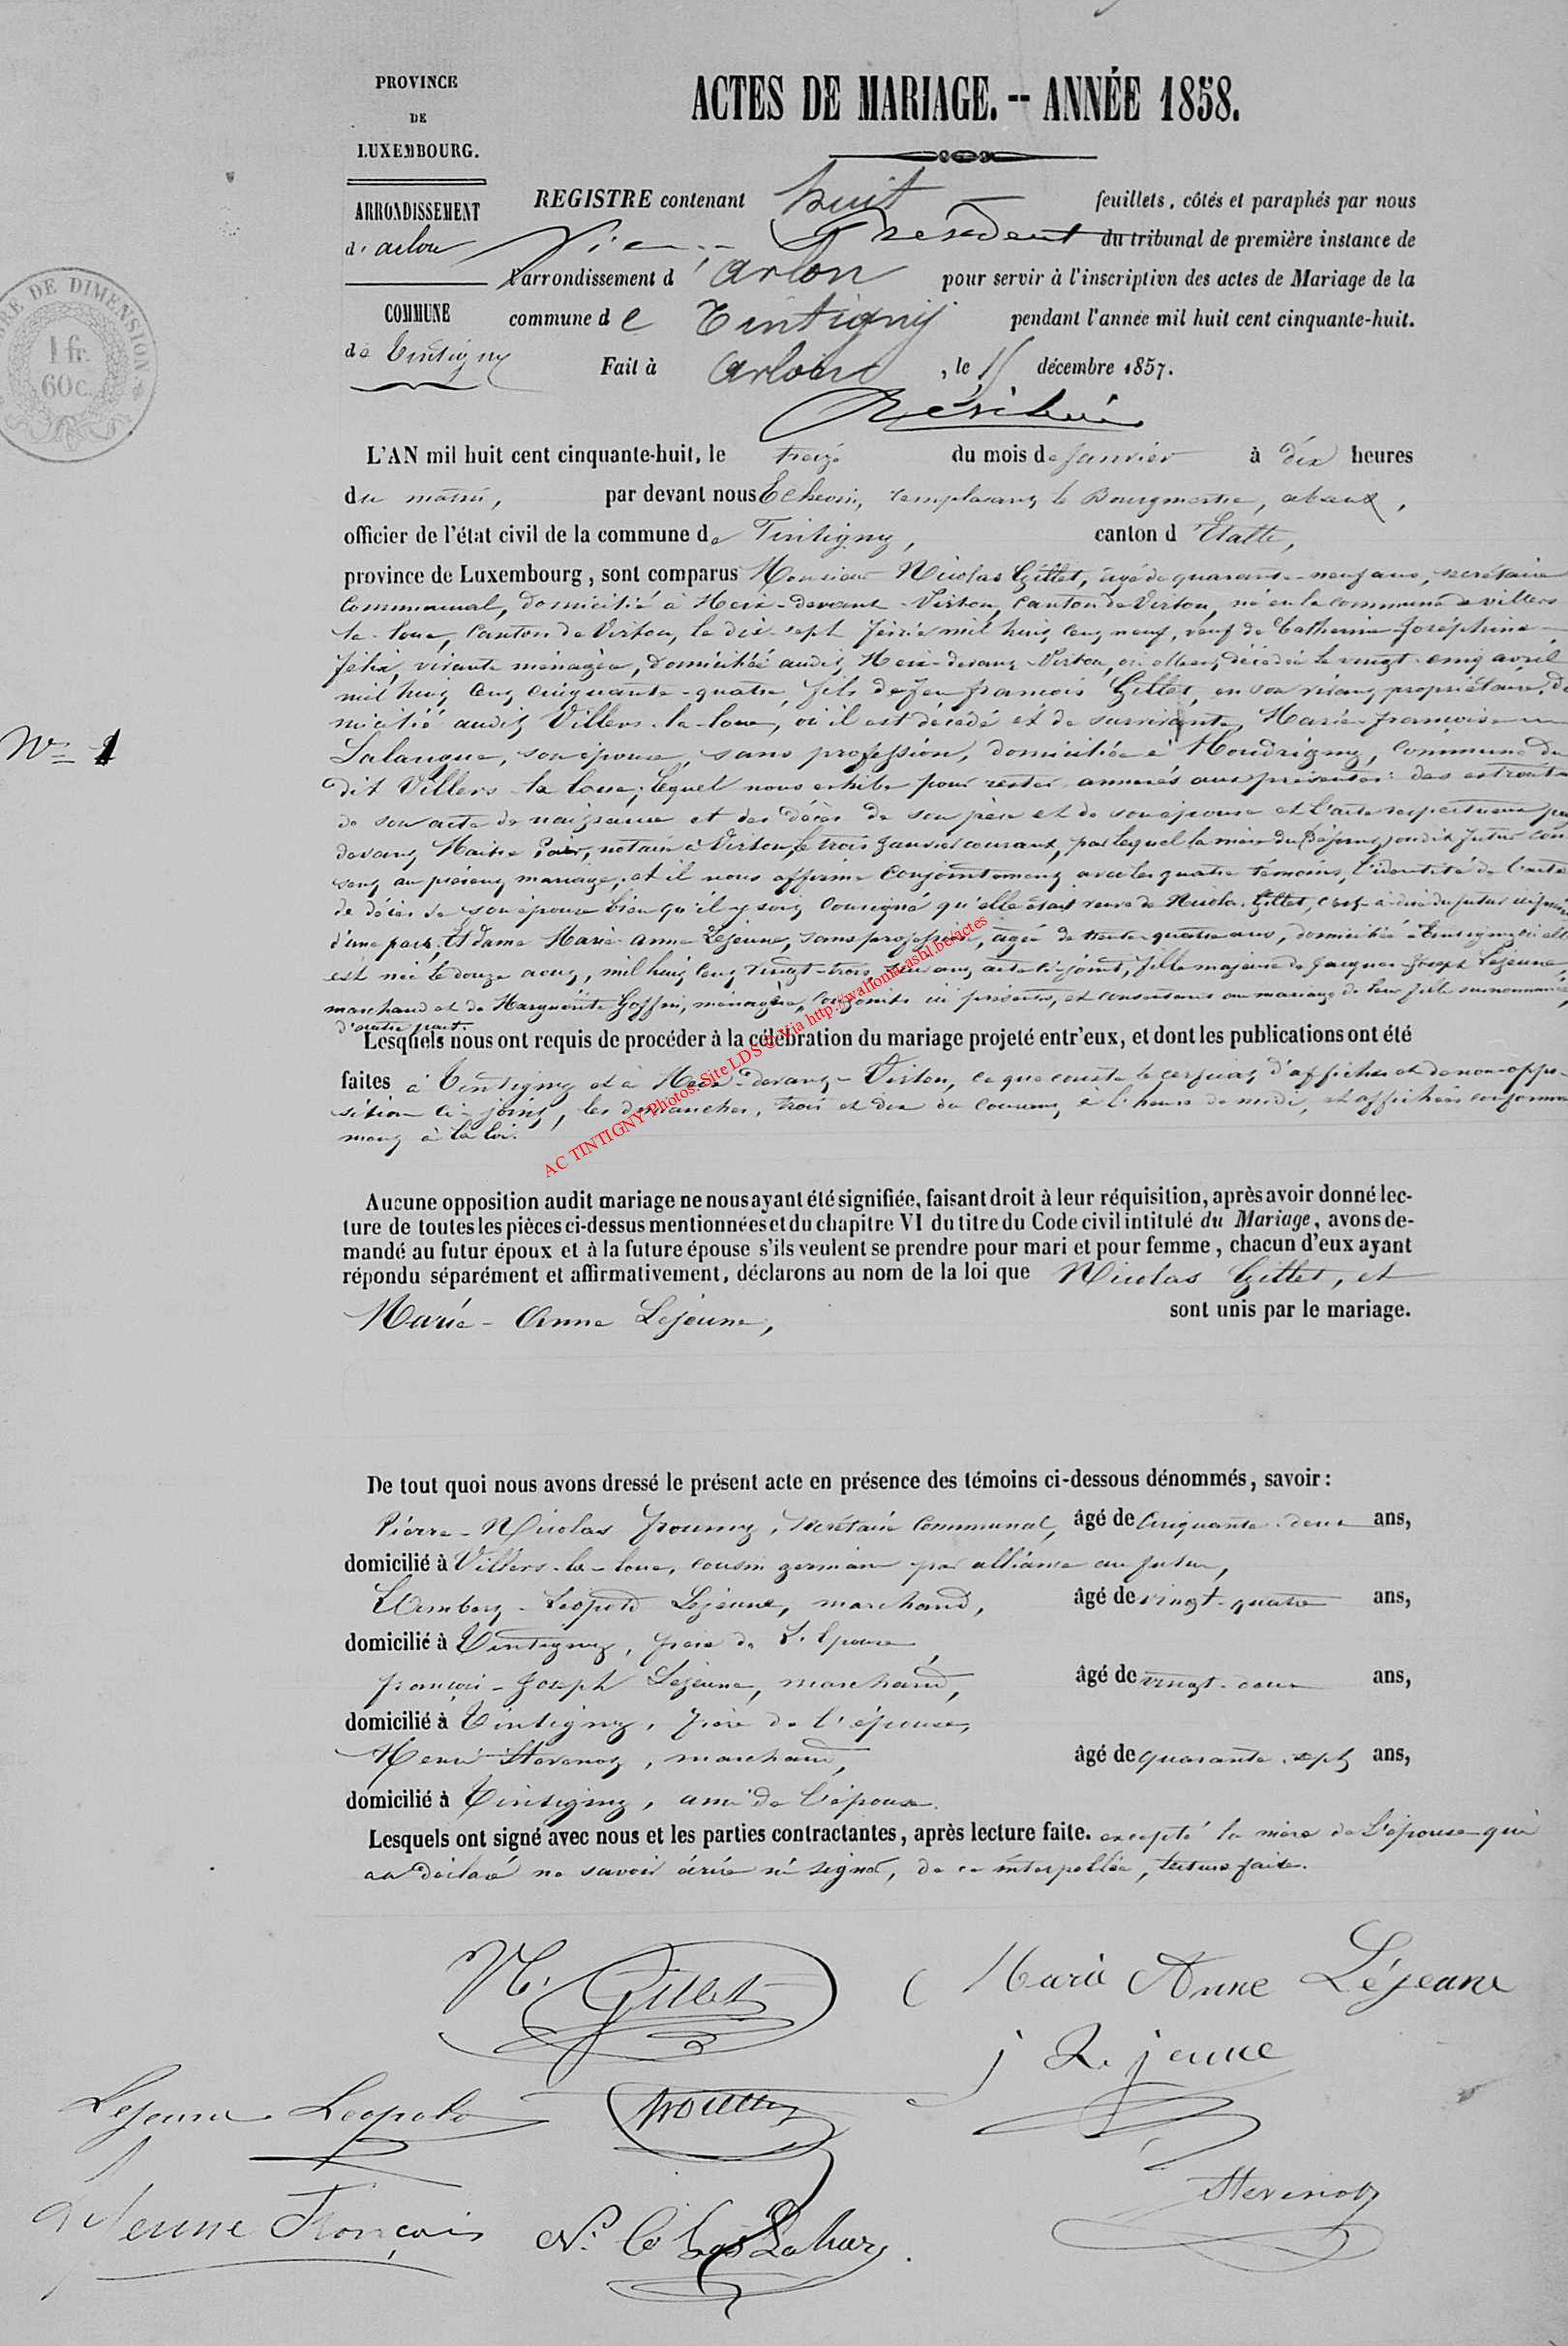 PROVINCE
DE
LUXEMBOURG.
ACTES DE MARIAGE. -- ANNÉE 1858.
ARRONDISSEMENT
d' arlon
COMMUNE
de Tintigny
RE DE DIMENSION
1 fr.
60 c.
REGISTRE contenant huit feuillets, côtés et paraphés par nous
Vice-Président du tribunal de première instance de
l'arrondissement d'Arlon pour servir à l'inscription des actes de Mariage de la
commune de Tintigny pendant l'année mil huit cent cinquante-huit.
Fait à Arlon, le décembre 1857.
L'AN mil huit cent cinquante-huit, le treize du mois de Janvier à dix heures
du matin, par devant nous Echevin, remplaçant le Bourgmestre, absent,
officier de l'état civil de la commune de Tintigny, canton d'Etalle,
province de Luxembourg, sont comparus Monsieur Nicolas Gillet, âgé de quarante-neuf ans, secrétaire
Communal, domicilié à Meix-devant-Virton, Canton de Virton, né en la commune de villers
la-loue, Canton de Virton, le dix-sept février mil huit cent neuf, veuf de Catherine Joséphine
Félix, vivante ménagère, domiciliée audit Meix-devant-Virton, où elle est décédée le vingt-cinq avril
mil huit cent cinquante-quatre, fils de feu françois Gillet, en son vivant propriétaire, do
micilié audit Villers-la-loue, où il est décédé et de survivante Marie-françoise
Lalangue, son épouse, sans profession, domiciliée à Houdrigny, Commune du
dit Villers-la-loue; lequel nous exhibe pour rester annexés aux présentes: des extraits
de son acte de naissance et des décès de son père et de son épouse et l'acte respectueux
devant Maître notaire à Virton, le trois Janvier courant, par lequel la mère du dit futur con
sent au présent mariage; et il nous affirme Conjointement avec les quatre témoins, l'identité de l'acte
de décès de son épouse bien qu'il y soit Consigné qu'elle était veuve de Nicolas Gillet, c'est-à-dire du futur
d'une part, Et dame Marie-anne Lejeune, sans profession, âgée de trente-quatre ans, domiciliée à Tintigny où elle
est née le douze août, mil huit cent vingt-trois, acte ci-joint, fille majeure de Jacques-Joseph Lejeune,
marchand et de Marguerite Goffin, ménagère, Conjoints ici présents, et consentants au mariage de leur fille surnommée,
d'autre part.
Lesquels nous ont requis de procéder à la célébration du mariage projeté entr'eux, et dont les publications ont été
faites à Tintigny et à Meix-devant-Virton, ce que conste le certificat d'affiches et de non-oppo-
sition ci-joint, les dimanches, trois et dix du Courant, à l'heure de midi, et affichées conformé
ment à la loi.
N° 1
AC TINTIGNY Photos: Site LDS © Via http://wallonia-asbl.be/actes
Aucune opposition audit mariage ne nous ayant été signifiée, faisant droit à leur réquisition, après avoir donné lec-
ture de toutes les pièces ci-dessus mentionnées et du chapitre VI du titre du Code civil intitulé du Mariage, avons de-
mandé au futur époux et à la future épouse s'ils veulent se prendre pour mari et pour femme, chacun d'eux ayant
répondu séparément et affirmativement, déclarons au nom de la loi que Nicolas Gillet, et
Marie-Anne Lejeune, sont unis par le mariage.
De tout quoi nous avons dressé le présent acte en présence des témoins ci-dessous dénommés, savoir:
Pierre-Nicolas Proumy, secrétaire Communal, âgé de Cinquante-deux ans,
domicilié à Villers-la-loue, cousin germain par alliance au futur,
Lambert-Léopold Lejeune, marchand, âgé de vingt-quatre ans,
domicilié à Tintigny, frère de l'Epouse,
françois-Joseph Lejeune, marchand, âgé de vingt-deux ans,
domicilié à Tintigny, frère de l'épouse,
Henri Stevenot, marchand, âgé de quarante-sept ans,
domicilié à Tintigny, ami de l'épouse.
Lesquels ont signé avec nous et les parties contractantes, après lecture faite. excepté la mère de L'épouse qui
a déclaré ne savoir écrire ni signer, de ce interpellée, lecture faite.
N. Gillet
Marie Anne Léjeane
j Lejeune
Lejeune Léopold
Lejeune François
Stevenot